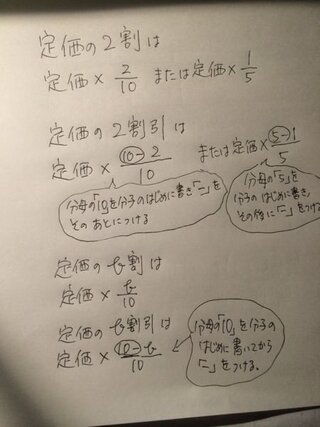 定価の2割は
定価× 2/10 または定価× 1/5
定価の2割引は
定価× (10-2)/10 または定価× (5-1)/5
分母の「10」を分子のはじめに書き「-」を
そのあとにつける
分母の「5」を
分子のはじめに書き、
その後に「-」をつける
定価のt割は
定価× t/10
定価のt割引は
定価× (10-t)/10
分母の「10」を分子の
はじめに書いてから
「-」をつける。